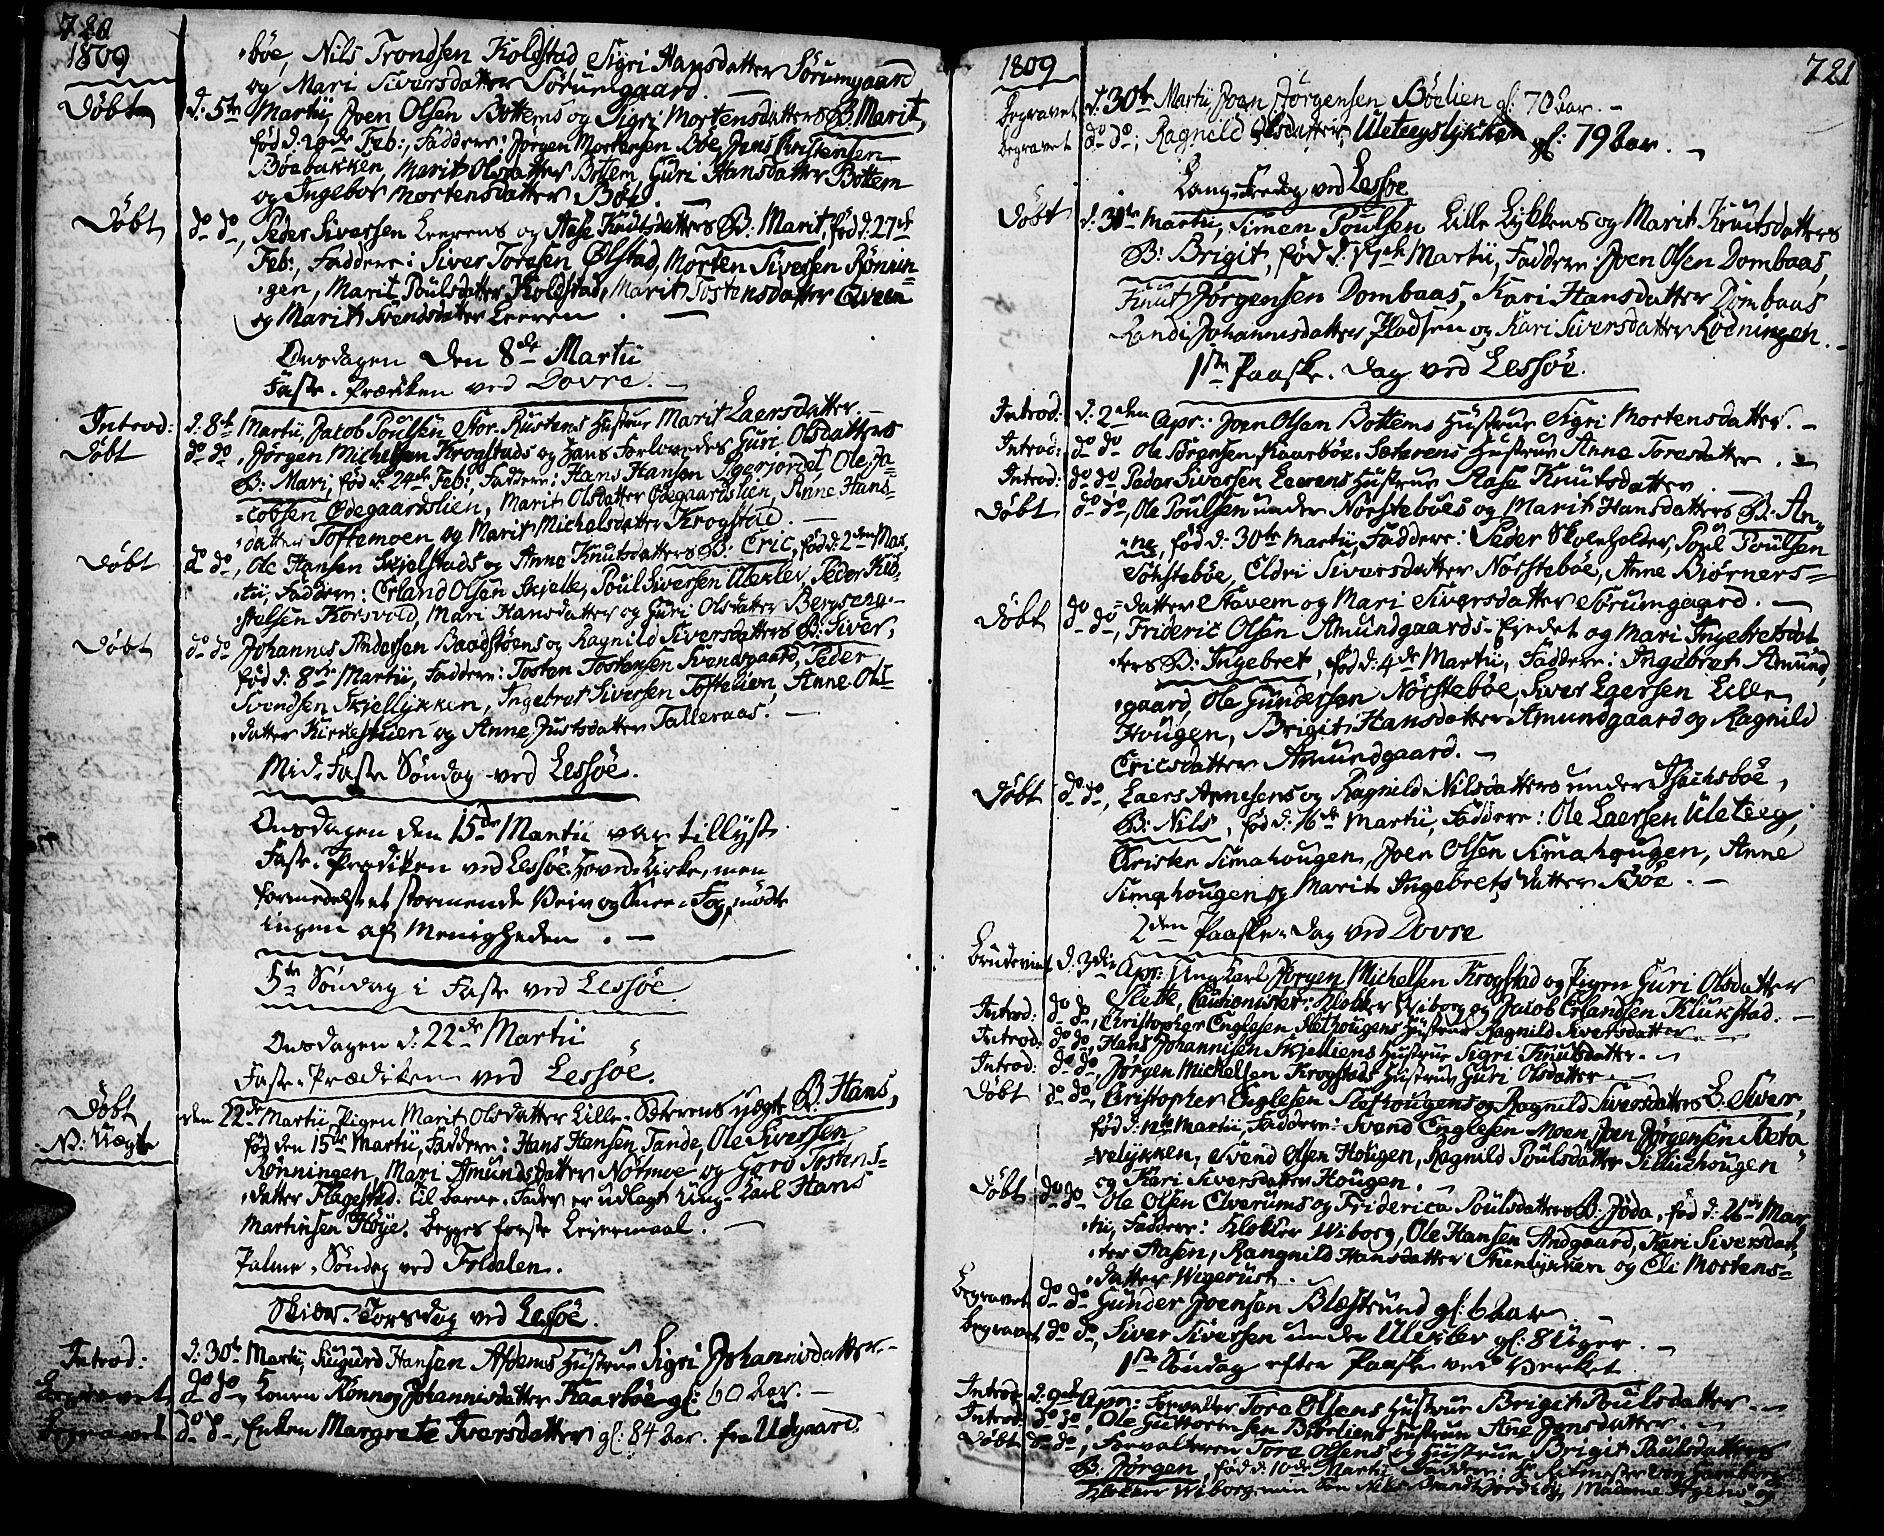 720
1809
bøe, Nils Trondsen Kolstad Sigri Hansdatter Sørumgaard
og Mari Siversdatter Sørumgaard. —
Døbt d: 5te Martii Joen Olsen Bottems og Sigri Mortensdatters B: Marit,
fød d: Feb:, Faddere: Jørgen Mortensen Bøe, Jens Christensen
Bøebakken, Marit Olsdatter Bottem Guri Hansdatter Bottem
og Ingebor Mortensdatter Bøe. —
Døbt do do, Peder Siversen Leerens og Aase Knutsdatters B: Marit, fød d: 27de
Feb:, Faddere: Siver Toresen Ølstad, Morten Siversen Rønnin-
gen, Marit Poulsdatter Kolstad, Marit Tostensdatter Qveen
og Marit Svendsdatter Leeren. —
Onsdagen den 8de Martii
Faste-Prædiken ved Dovre. —
Introd: d: 8de Martii, Jacob Poulsen Stor-Rustens Hustrue Marit Laersdatter. —
Døbt do do, Jørgen Michelsen Krogstads og Hans Forlovedes Guri Olsdatters
B: Mari, fød d: 24de Feb:, Faddere: Hans Hansen Igerjordet, Ole Ja-
cobsen Ødegaardslien, Marit Olsdatter Ødegaardslien, Anne Hans-
datter Toftemoen og Marit Michelsdatter Krogstad. —
Døbt do do, Ole Hansen Skjelstads og Anne Knutsdatters B: Eric, fød d: 2den Mar-
tii, Faddere: Erland Olsen Skjelle, Poul Siversen Ulekler, Peder
Korsvold, Mari Hansdatter og Guri Olsdatter
Døbt do do Johannes Andersen Baadstøens og Ragnild Siversdatters B: Siver,
fød d: 8de Martii, Faddere: Tosten Tostensen Svensgaard, Peder
Svendsen Skjellykken, Ingebret Siversen Toftelien, Anne Ols-
datter Kirkestuen og Anne Justsdatter Talleraas. —
Mid-Faste Søndag ved Lessøe.
Onsdagen den 15de Martii var tillyst
Faste-Prædiken ved Lessøe Hoved-Kirke, men
formedelst et stormende Veir og Snee-Fog, mødte
ingen af Menigheden. —
5te Søndag i Faste ved Lessøe
Onsdagen d: 22de Martii
Faste-Prædiken ved Lessøe.
Døbt den 22de Martii, Pigen Marit Olsdatter Lille-Sæterens uægte B: Hans,
N: Uægte fød den 15de Martii, Faddere: Hans Hansen Tande, Ole Siversen
Rønningen, Mari Amundsdatter Nørmoe og Goro Tostens-
datter Flagestad. Til barne-Fader er udlagt Ung-Karl Hans
Martinsen Høye. Begges første Leiermaal. —
Palme-Søndag ved Foldalen.
Skiær-Torsdag ved Lessøe.
Introd: d: 30te Martii, Sigurd Hansen Afdems Hustrue Sigri Johannisdatter. —
Begravet do do, Konen Rønnog Johannisdatter Kaarbøe gl: 60 Aar. —
Begravet do do, Enken Margrete Iversdatter gl: 84 Aar. fra Udgaard.
1809
721
Begravet d: 30te Martii, Joen Jørgensen Bøelien gl: 70 Aar. —
Begravet do do, Ragnild Olsdatter, Uleteeyslykken gl: 79 Aar. —
Lang-Fredag ved Lessøe
Døbt d: 31te Martii, Simen Poulsen Lille Lykkens og Marit Knutsdatters
B: Brigit, fød d: 17de Martii, Faddere: Joen Olsen Dombaas,
Knut Jørgensen Dombaas, Kari Hansdatter Dombaas
Randi Johannisdatter Pladsen og Kari Siversdatter Rødningen. —
1ste Paaske-Dag ved Lessøe.
Introd: d: 2den Apr: Joen Olsen Bottems Hustrue Sigri Mortensdatter. —
Introd: do do Ole Torgersen Kaarbøe-Sæterens Hustrue Anne Toresdatter. —
Introd: do do Peder Siversen Leerens Hustrue Aase Knutsdatter.
Døbt do do, Ole Poulsen under Nørstebøes og Marit Hansdatters B: An-
ne, fød d: 30te Martii, Faddere: Peder Skoleholder, Poul Poulsen
Nørstebøe, Eldri Siversdatter Nørstebøe, Anne Biørners-
datter Stavem og Mari Siversdatter Sørumgaard. —
Døbt do do, Frideric Olsen Amundgaards-Eyedet og Mari Ingebretsdat-
ters B: Ingebret, fød d: 4de Martii, Faddere: Ingebret Amund-
gaard, Ole Gundersen Nørstebøe, Siver Egersen Lille
Hougen, Brigit Hansdatter Amundgaard og Ragnild
Ericsdatter Amundgaard. —
Døbt do do, Laers Arnesens og Ragnild Nilsdatters under Isachsbøe,
B: Nils, fød d: 16de Martii, Faddere: Ole Laersen Uleteeg,
Christen Simahougen, Joen Olsen Simahougen, Anne
Simahougen og Marit Ingebretsdatter Bøe. —
2den Paaske-Dag ved Dovre
Brudeviet d: 3die Apr: Ungkarl Jørgen Michelsen Krogstad og Pigen Guri Olsdatter
Slette, Cautionister: Klokker Wiborg og Jacob Erlandsen Klukstad. —
Introd: do do, Christopher Englesen Slethougens Hustrue Ragnild Siversdatter. —
Introd: do do, Hans Johannisen Skjelliens Hustrue Sigri Knutsdatter. —
Introd: do do, Jørgen Michelsen Krogstads Hustrue Guri Olsdatter. —
Døbt do do, Christopher Englesen Slethougens og Ragnild Siversdatters B: Siver,
fød d: Martii, Faddere: Svend Englesen Moen, Joen Jørgensen
lykken, Svend Olsen Hougen, Ragnild Poulsdatter Sillihougen
og Kari Siversdatter Hougen. —
Døbt do do Ole Olsen Elverums og Friderica Poulsdatters B: Jøda, fød d: 26de Mar-
tii, Faddere: Klokker Wiborg, Ole Hansen Andgaard, Kari Siversdat-
ter Aasen, Rangnild Hansdatter Steenlykken og Eli Mortens-
datter Wigerust. —
Begravet do do Gunder Joensen Blæstrund gl: 6 Aar —
Begravet do do, Siver Siversen under Ulekler gl: 8 Uger. —
1ste Søndag efter Paaske ved Verket
Introd: d: 9de Apr: Forvalter Tore Olsens Hustrue Brigit Poulsdatter. —
Introd: do do, Ole Guttormsen Bøeliens Hustrue Ane Jonsdatter. —
Døbt do do, Forvalteren Tore Olsens og Hustrue Brigit Poulsdatters
B: Jørgen, fød d: 10de Martii, Faddere: Hr Ritmester von Hamborg
Klokker Wiborg, min Søn Nils Brandt Madame og